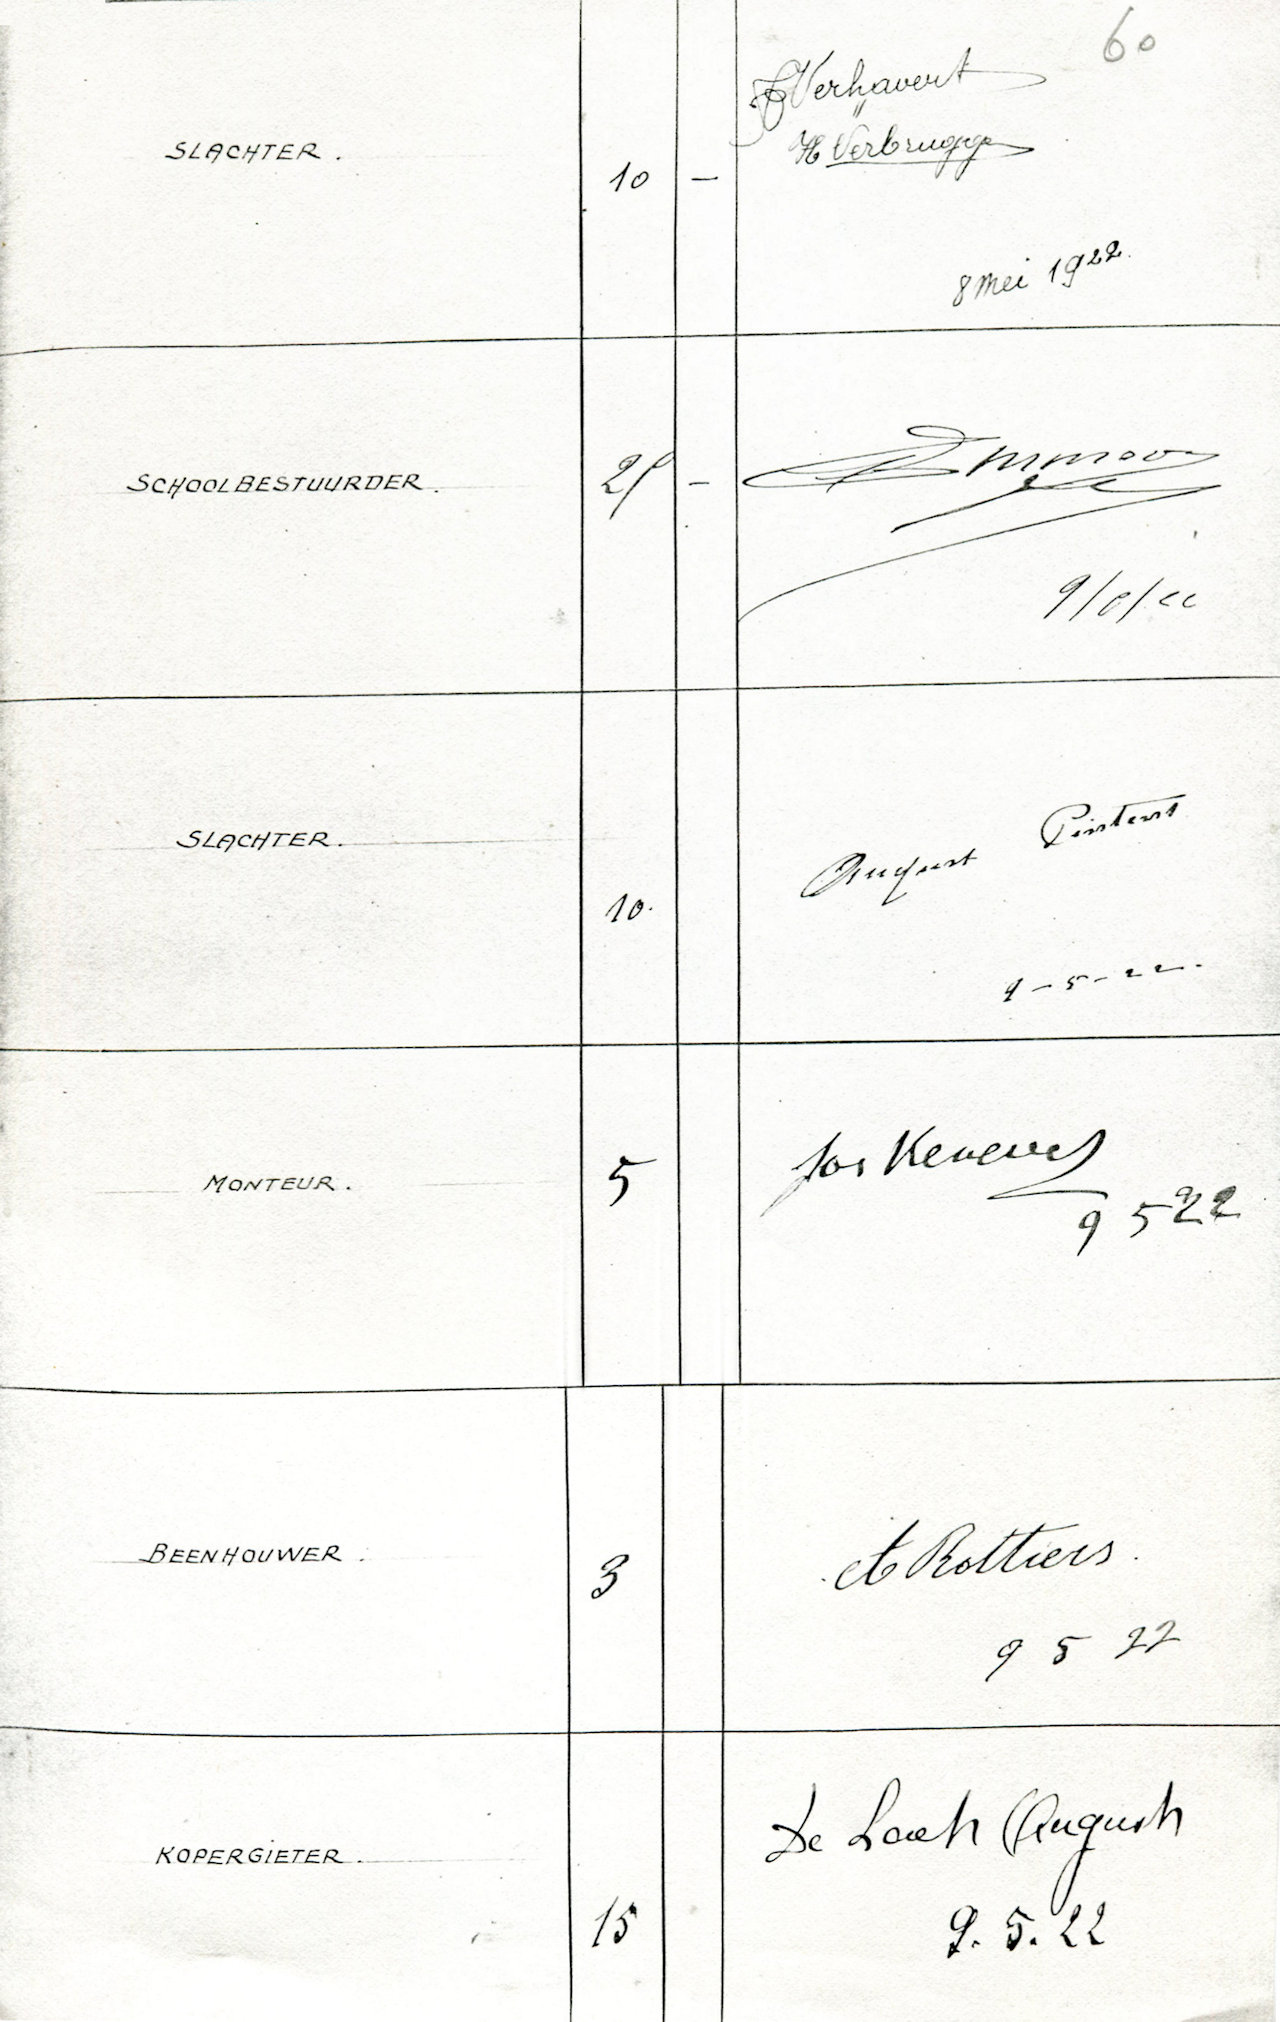 60
SLACHTER.
10 -
Verhavert
H Verbrugge
8 Mei 1922.
SCHOOLBESTUURDER.
25 -
9/5/22
SLACHTER.
10.
August Pintens
9-5-22.
MONTEUR.
5
Jos
9 5 22
BEENHOUWER.
3
A Rottiers.
9 5 22
KOPERGIETER.
15
De August
9.5.22